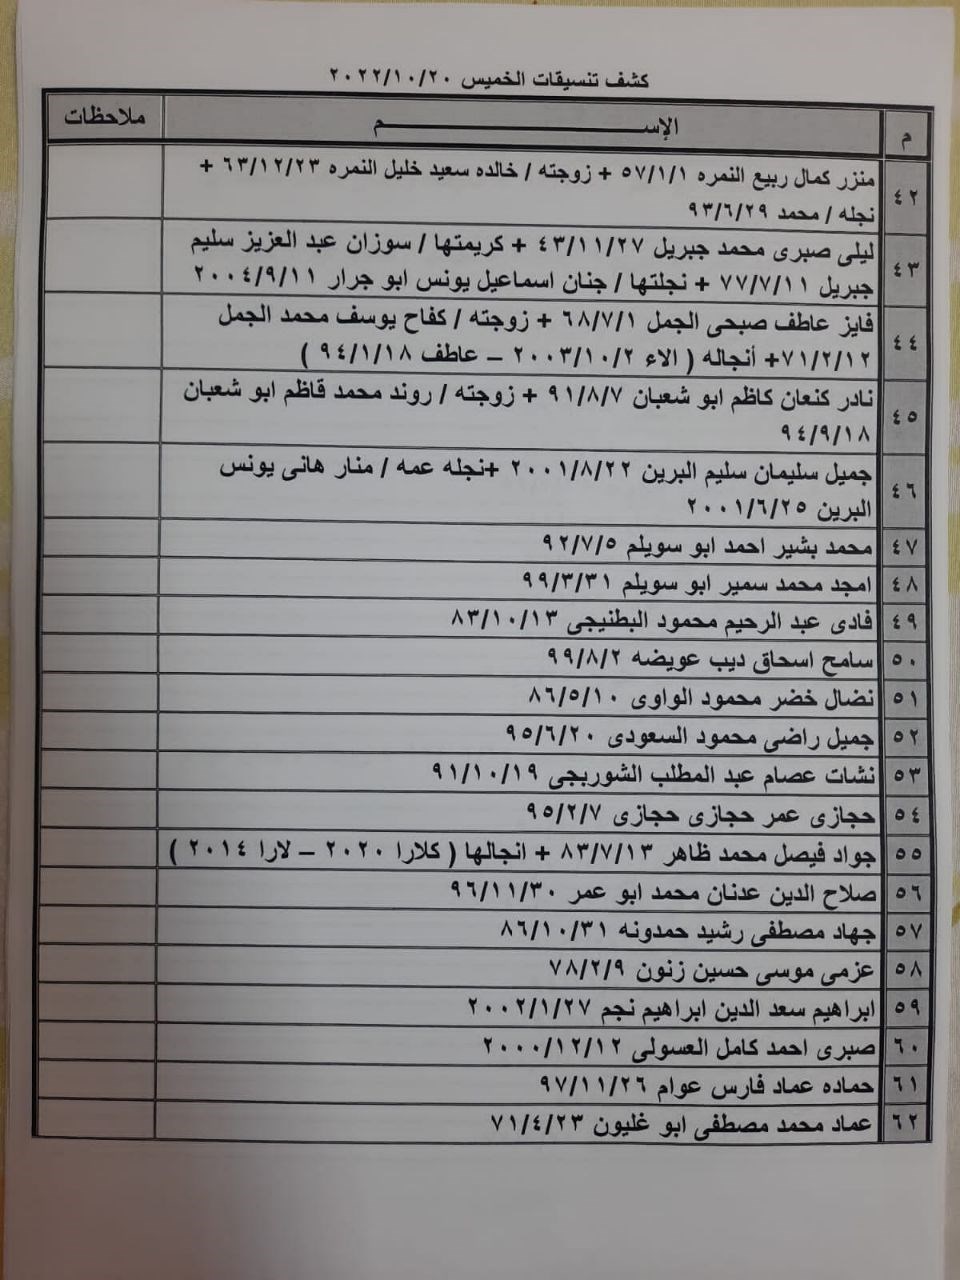 كشف تنسيقات الخميس ٢٠٢٢/١٠/٢٠
م الإســـــــــــــــــــــــم ملاحظات
٤٢ منزر كمال ربيع النمره ٥٧/١/١ + زوجته / خالده سعيد خليل النمره ٦٣/١٢/٢٣ +
نجله / محمد ٩٣/٦/٢٩
٤٣ ليلى صبرى محمد جبريل ٤٣/١١/٢٧ + كريمتها / سوزان عبد العزيز سليم
جبريل ٧٧/٧/١١ + نجلتها / جنان اسماعيل يونس ابو جرار ٢٠٠٤/٩/١١
٤٤ فايز عاطف صبحى الجمل ٦٨/٧/١ + زوجته / كفاح يوسف محمد الجمل
٧١/٢/١٢+ أنجاله ( الاء ٢٠٠٣/١٠/٢ – عاطف ٩٤/١/١٨ )
٤٥ نادر كنعان كاظم ابو شعبان ٩١/٨/٧ + زوجته / روند محمد قاظم ابو شعبان
٩٤/٩/١٨
٤٦ جميل سليمان سليم البرين ٢٠٠١/٨/٢٢ +نجله عمه / منار هانى يونس
البرين ٢٠٠١/٦/٢٥
٤٧ محمد بشير احمد ابو سويلم ٩٢/٧/٥
٤٨ امجد محمد سمير ابو سويلم ٩٩/٣/٣١
٤٩ فادى عبد الرحيم محمود البطنيجى ٨٣/١٠/١٣
٥٠ سامح اسحاق ديب عويضه ٩٩/٨/٢
٥١ نضال خضر محمود الواوى ٨٦/٥/١٠
٥٢ جميل راضى محمود السعودى ٩٥/٦/٢٠
٥٣ نشات عصام عبد المطلب الشوربجى ٩١/١٠/١٩
٥٤ حجازى عمر حجازى حجازى ٩٥/٢/٧
٥٥ جواد فيصل محمد ظاهر ٨٣/٧/١٣ + انجالها ( كلارا ٢٠٢٠ – لارا ٢٠١٤ )
٥٦ صلاح الدين عدنان محمد ابو عمر ٩٦/١١/٣٠
٥٧ جهاد مصطفى رشيد حمدونه ٨٦/١٠/٣١
٥٨ عزمى موسى حسين زنون ٧٨/٢/٩
٥٩ ابراهيم سعد الدين ابراهيم نجم ٢٠٠٢/١/٢٧
٦٠ صبرى احمد كامل العسولى ٢٠٠٠/١٢/١٢
٦١ حماده عماد فارس عوام ٩٧/١١/٢٦
٦٢ عماد محمد مصطفى ابو غليون ٧١/٤/٢٣